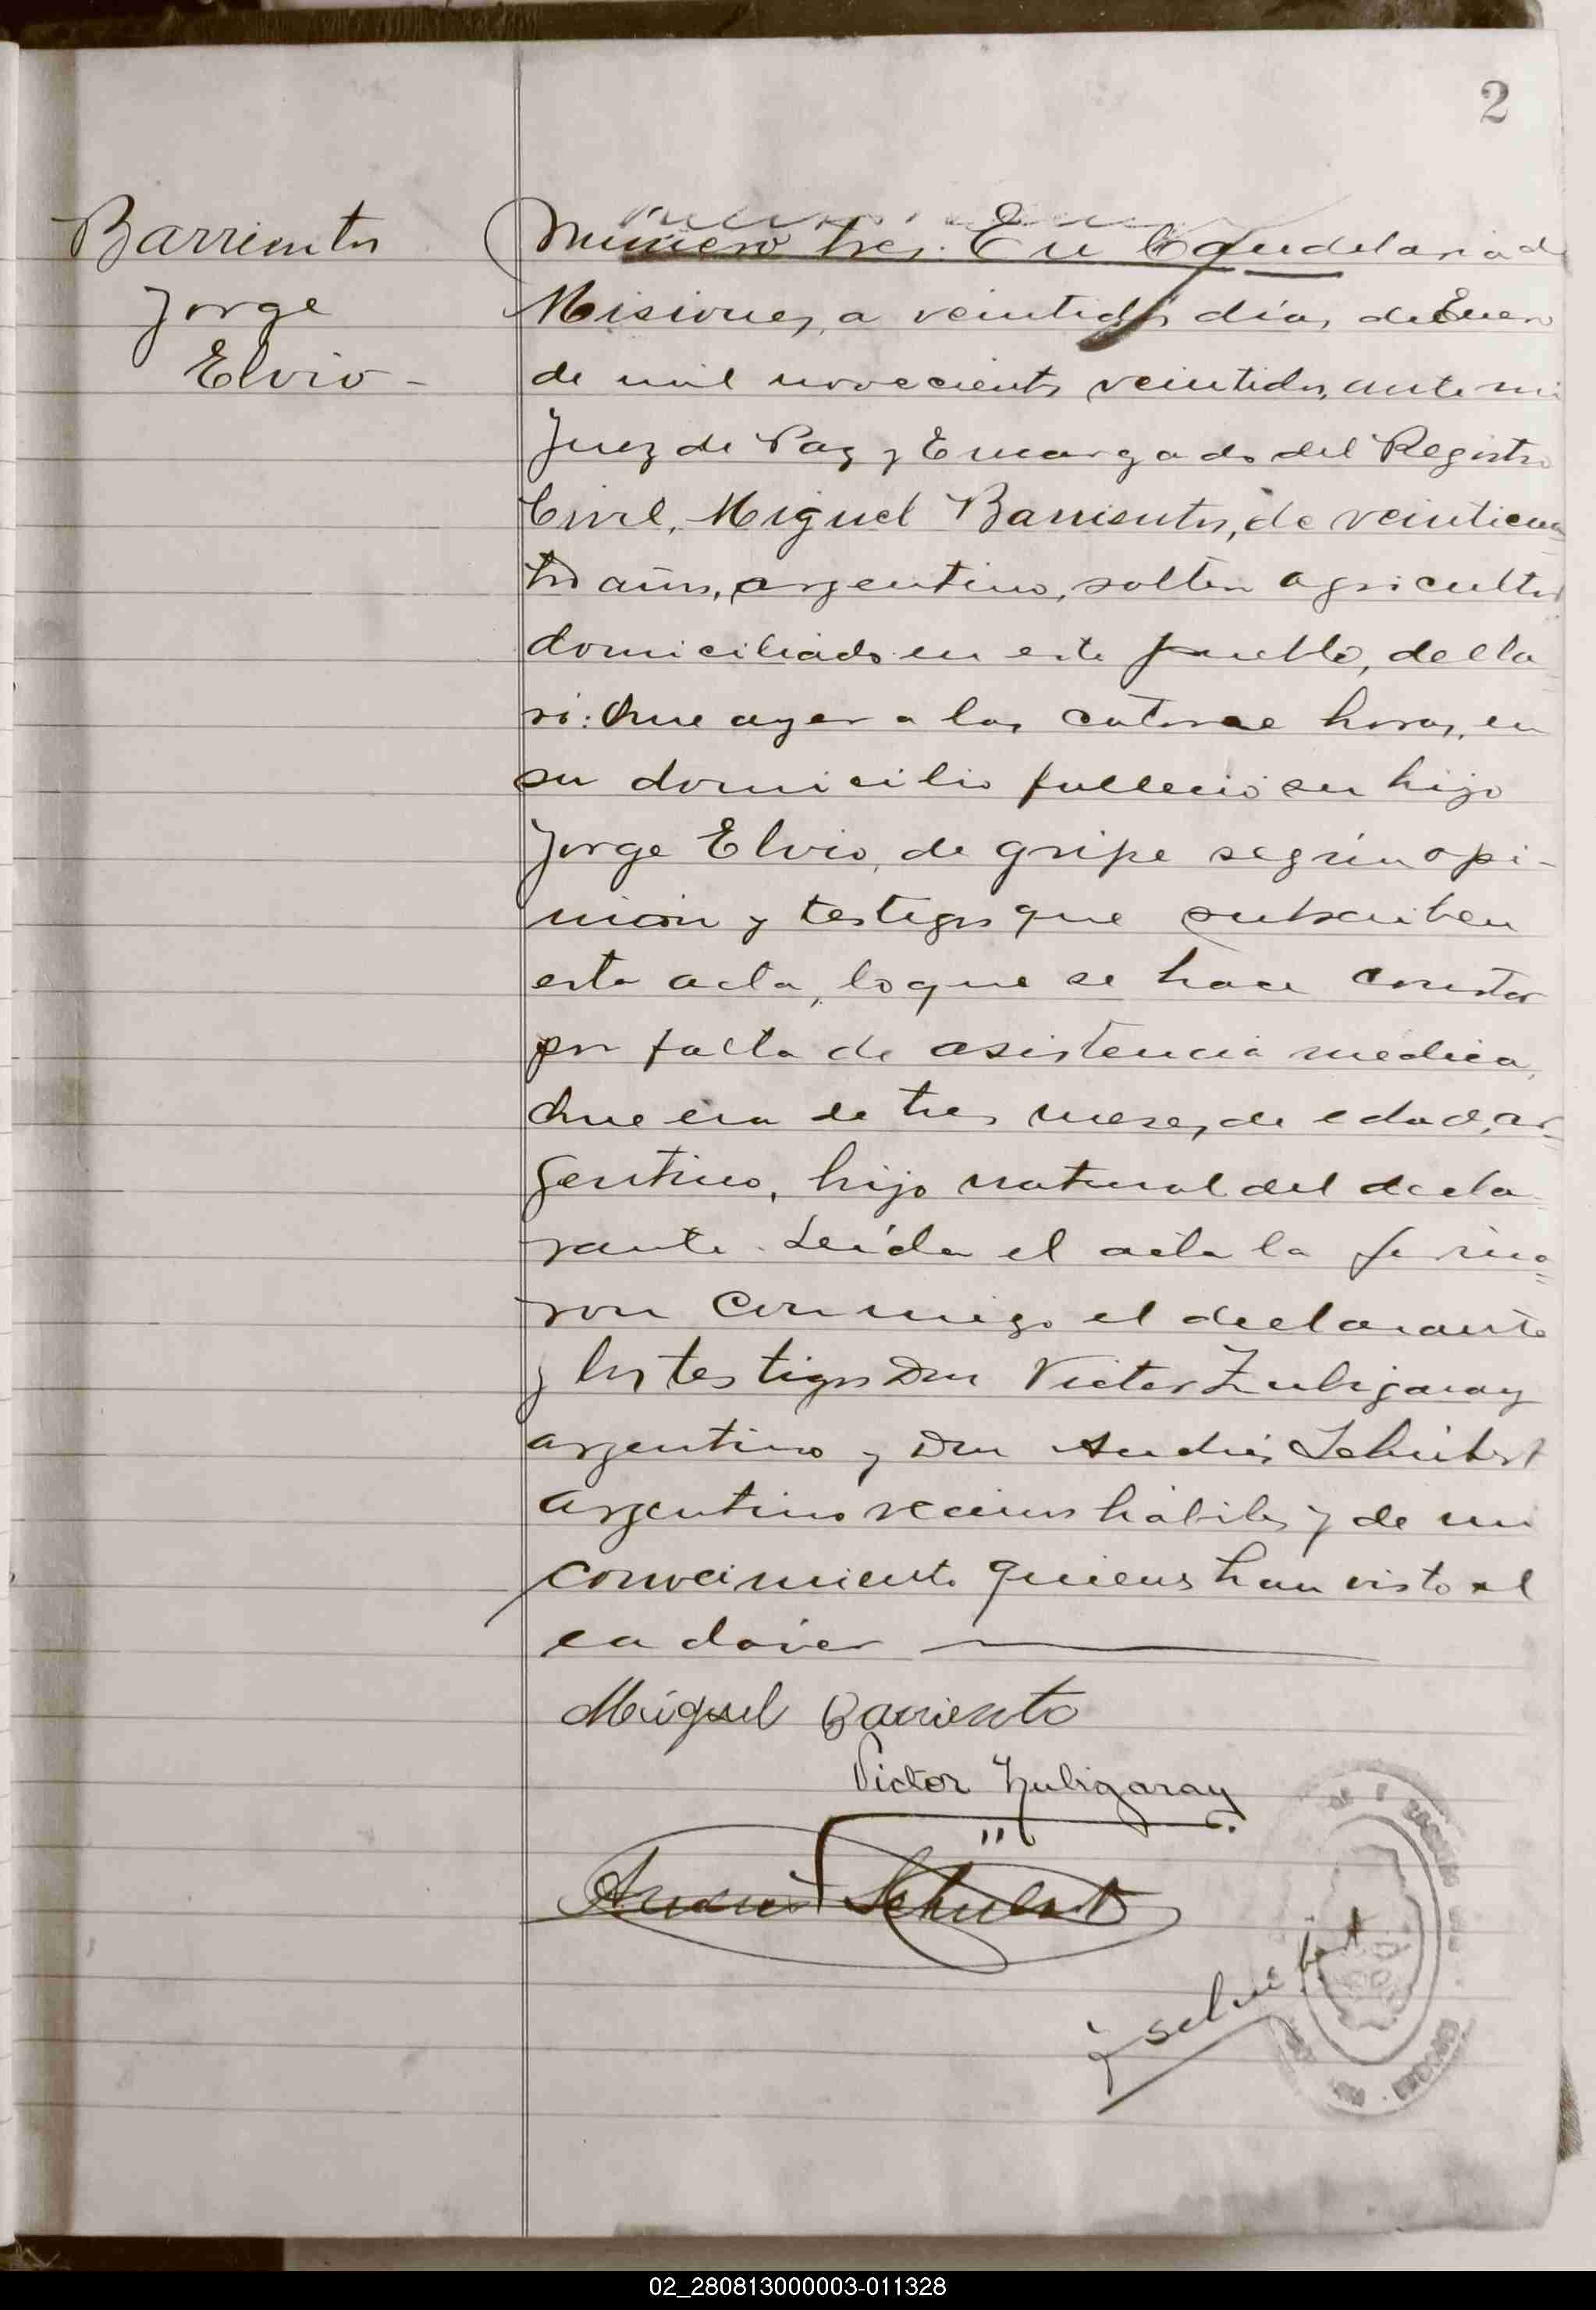 2
Barrientos
Jorge
Elvio -
Número tres: En Candelaria de
Misiones, a veintidós días de Enero
de mil novecientos veintidos, ante mi
Juez de Paz y Encargado del Registro
Civil, Miguel Barrientos, de veinticua
tro años, argentino, soltero agricultor
domiciliado en este pueblo, decla
ró: Que ayer a las catorce horas, en
su domicilio falleció su hijo
Jorge Elvio, de gripe según opi-
nión y testigos que subscriben
esta acta, lo que se hace constar
por falta de asistencia medica,
Que era de tres meses, de edad, ar-
gentino, hijo natural del decla
rante. Leída el acta la firma=
ron conmigo el declarante
y los testigos Don Victor Zubigaray
argentino y Don Andrés Schubert
argentino vecinos hábiles y de mi
conocimiento quienes han visto el
cadáver
Miguel Barriento
Victor Zubigaray
Andrés Schubert
Schubert
02_280813000003-011328